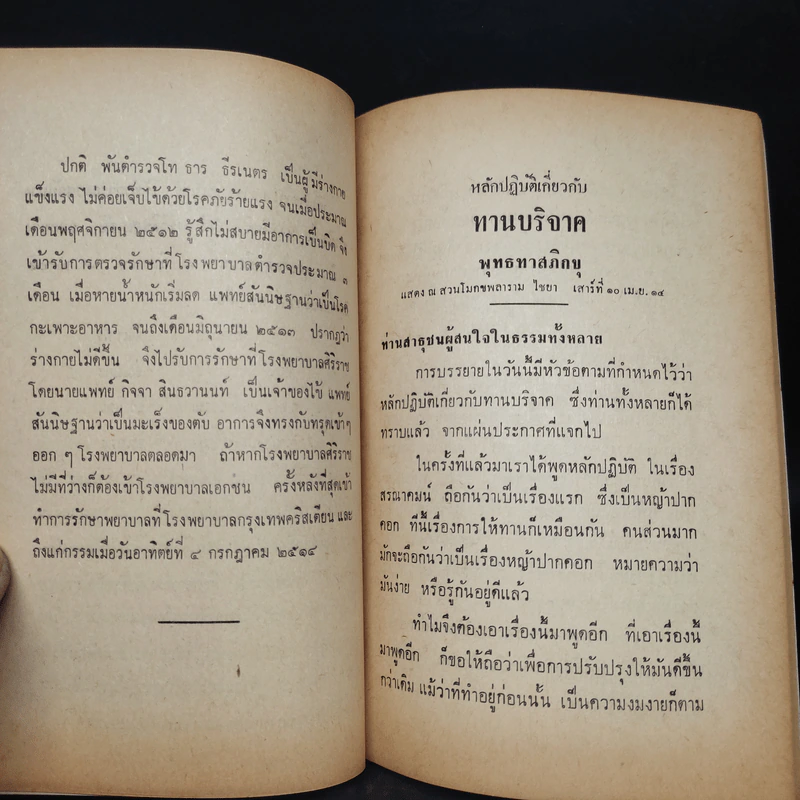 ปกติ พันตำรวจโท ธาร ธีรเนตร เป็นผู้มีร่างกาย
แข็งแรง ไม่ค่อยเจ็บไข้ด้วยโรคภัยร้ายแรง จนเมื่อประมาณ
เดือนพฤศจิกายน ๒๕๑๒ รู้สึกไม่สบายมีอาการเป็นบิด จึง
เข้ารับการตรวจรักษาที่โรงพยาบาลตำรวจประมาณ ๓
เดือน เมื่อหายน้ำหนักเริ่มลด แพทย์สันนิษฐานว่าเป็นโรค
กะเพาะอาหาร จนถึงเดือนมิถุนายน ๒๕๑๓ ปรากฏว่า
ร่างกายไม่ดีขึ้น จึงไปรับการรักษาที่โรงพยาบาลศิริราช
โดยนายแพทย์ กิจจา สินธวานนท์ เป็นเจ้าของไข้ แพทย์
สันนิษฐานว่าเป็นมะเร็งของตับ อาการจึงทรงกับทรุดเข้าๆ
ออก ๆ โรงพยาบาลตลอดมา ถ้าหากโรงพยาบาลศิริราช
ไม่มีที่ว่างก็ต้องเข้าโรงพยาบาลเอกชน ครั้งหลังที่สุดเข้า
ทำการรักษาพยาบาลที่โรงพยาบาลกรุงเทพคริสเตียน และ
ถึงแก่กรรมเมื่อวันอาทิตย์ที่ ๔ กรกฎาคม ๒๕๑๔
หลักปฏิบัติเกี่ยวกับ
ทานบริจาค
พุทธทาสภิกขุ
แสดง ณ สวนโมกขพลาราม ไชยา เสาร์ที่ ๑๐ เม.ย. ๑๔
ท่านสาธุชนผู้สนใจในธรรมทั้งหลาย
การบรรยายในวันนี้มีหัวข้อตามที่กำหนดไว้ว่า
หลักปฏิบัติเกี่ยวกับทานบริจาค ซึ่งท่านทั้งหลายก็ได้
ทราบแล้ว จากแผ่นประกาศที่แจกไป
ในครั้งที่แล้วมาเราได้พูดหลักปฏิบัติ ในเรื่อง
สรณาคมน์ ถือกันว่าเป็นเรื่องแรก ซึ่งเป็นหญ้าปาก
คอก ทีนี้เรื่องการให้ทานก็เหมือนกัน คนส่วนมาก
มักจะถือกันว่าเป็นเรื่องหญ้าปากคอก หมายความว่า
มันง่าย หรือรู้กันอยู่ดีแล้ว
ทำไมจึงต้องเอาเรื่องนี้มาพูดอีก ที่เอาเรื่องนี้
มาพูดอีก ก็ขอให้ถือว่าเพื่อการปรับปรุงให้มันดีขึ้น
กว่าเดิม แม้ว่าที่ทำอยู่ก่อนนั้น เป็นความงมงายก็ตาม